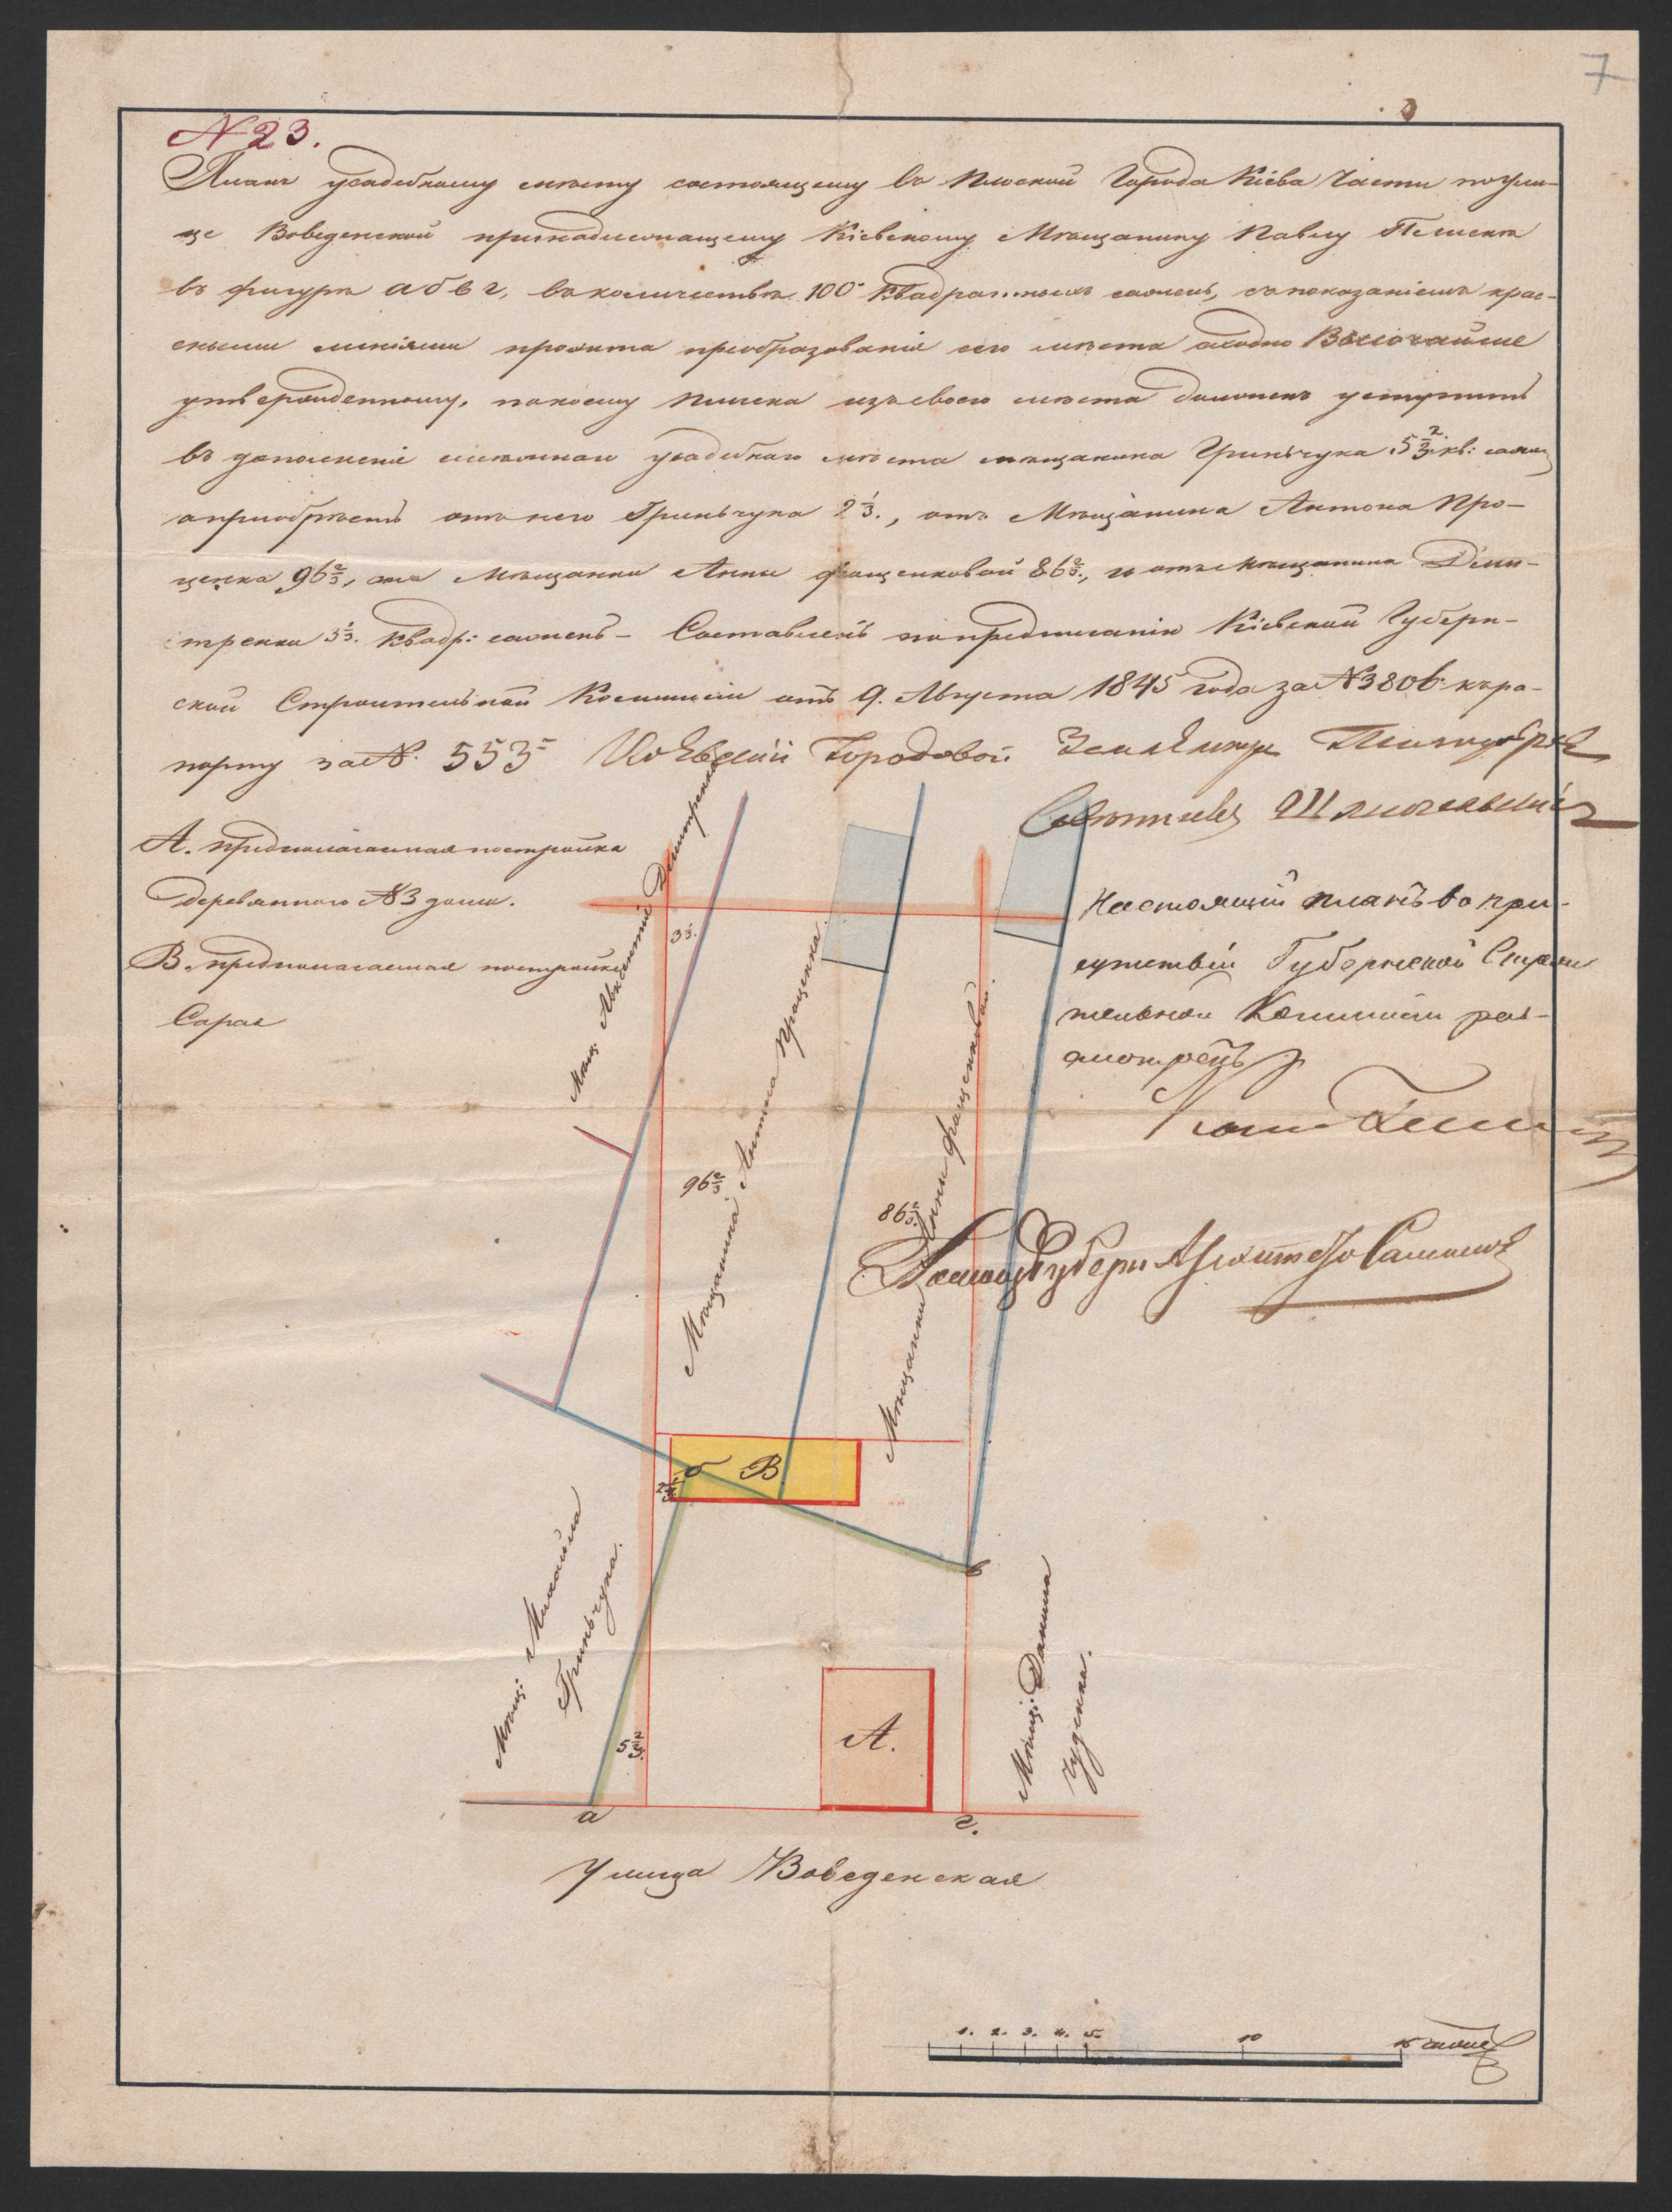 7
N 23.
Планъ усадебному мѣсту состоящему въ Плоской Города Кіева Части по ули-
це Воведенской принадлежащему Кіевскому Мѣщанину Павлу
въ фигурѣ а б в г, въ количествѣ 100 квадратныхъ сажень, съ показаніемъ крас-
ными линіями проэкта преобразованія сего мѣста сходно Высочайше
утвержденному, по коему изъ своего мѣста долженъ уступить
въ дополненіе усадебнаго мѣста мѣщанина Гриньчука 5 2/3 кв: сажень
а приобрѣсть отъ него Гриньчука 2 1/3., отъ Мѣщанина Антона Про-
ценка 96 2/3, отъ Мѣщанки Анны Фращенковой 86 2/3., и отъ мѣщанина Дми-
тренка 3 1/3. квадр: сажень – Составленъ по предписанію Кіевской Губерн-
ской Строительной Коммиссіи отъ 9. Августа 1845 года за N 3806 къ ра-
порту за N. 553 Кіевскій Городовой Землемѣръ
А. предполагаемая постройка
деревяннаго N 3 дома.
В. предполагаемая постройка
Сарая
Настоящій планъ въ при-
сутствіи Губернской Строи
тельной Коммиссіи раз-
смотрѣнъ
Губерн Архитектор
Мѣщ: Дмитренка
3 1/3.
Мѣщанина Антона Проценка.
96 2/3
Мѣщанки Анны Фращенковой.
86 2/3.
б
В
2 1/3
в
Мѣщ: Михайла
Гриньчука.
5 2/3.
А.
Мѣщ: Данила
Чуденка.
а
г.
Улица Воведенская
1. 2. 3. 4. 5. 10 15 сажень